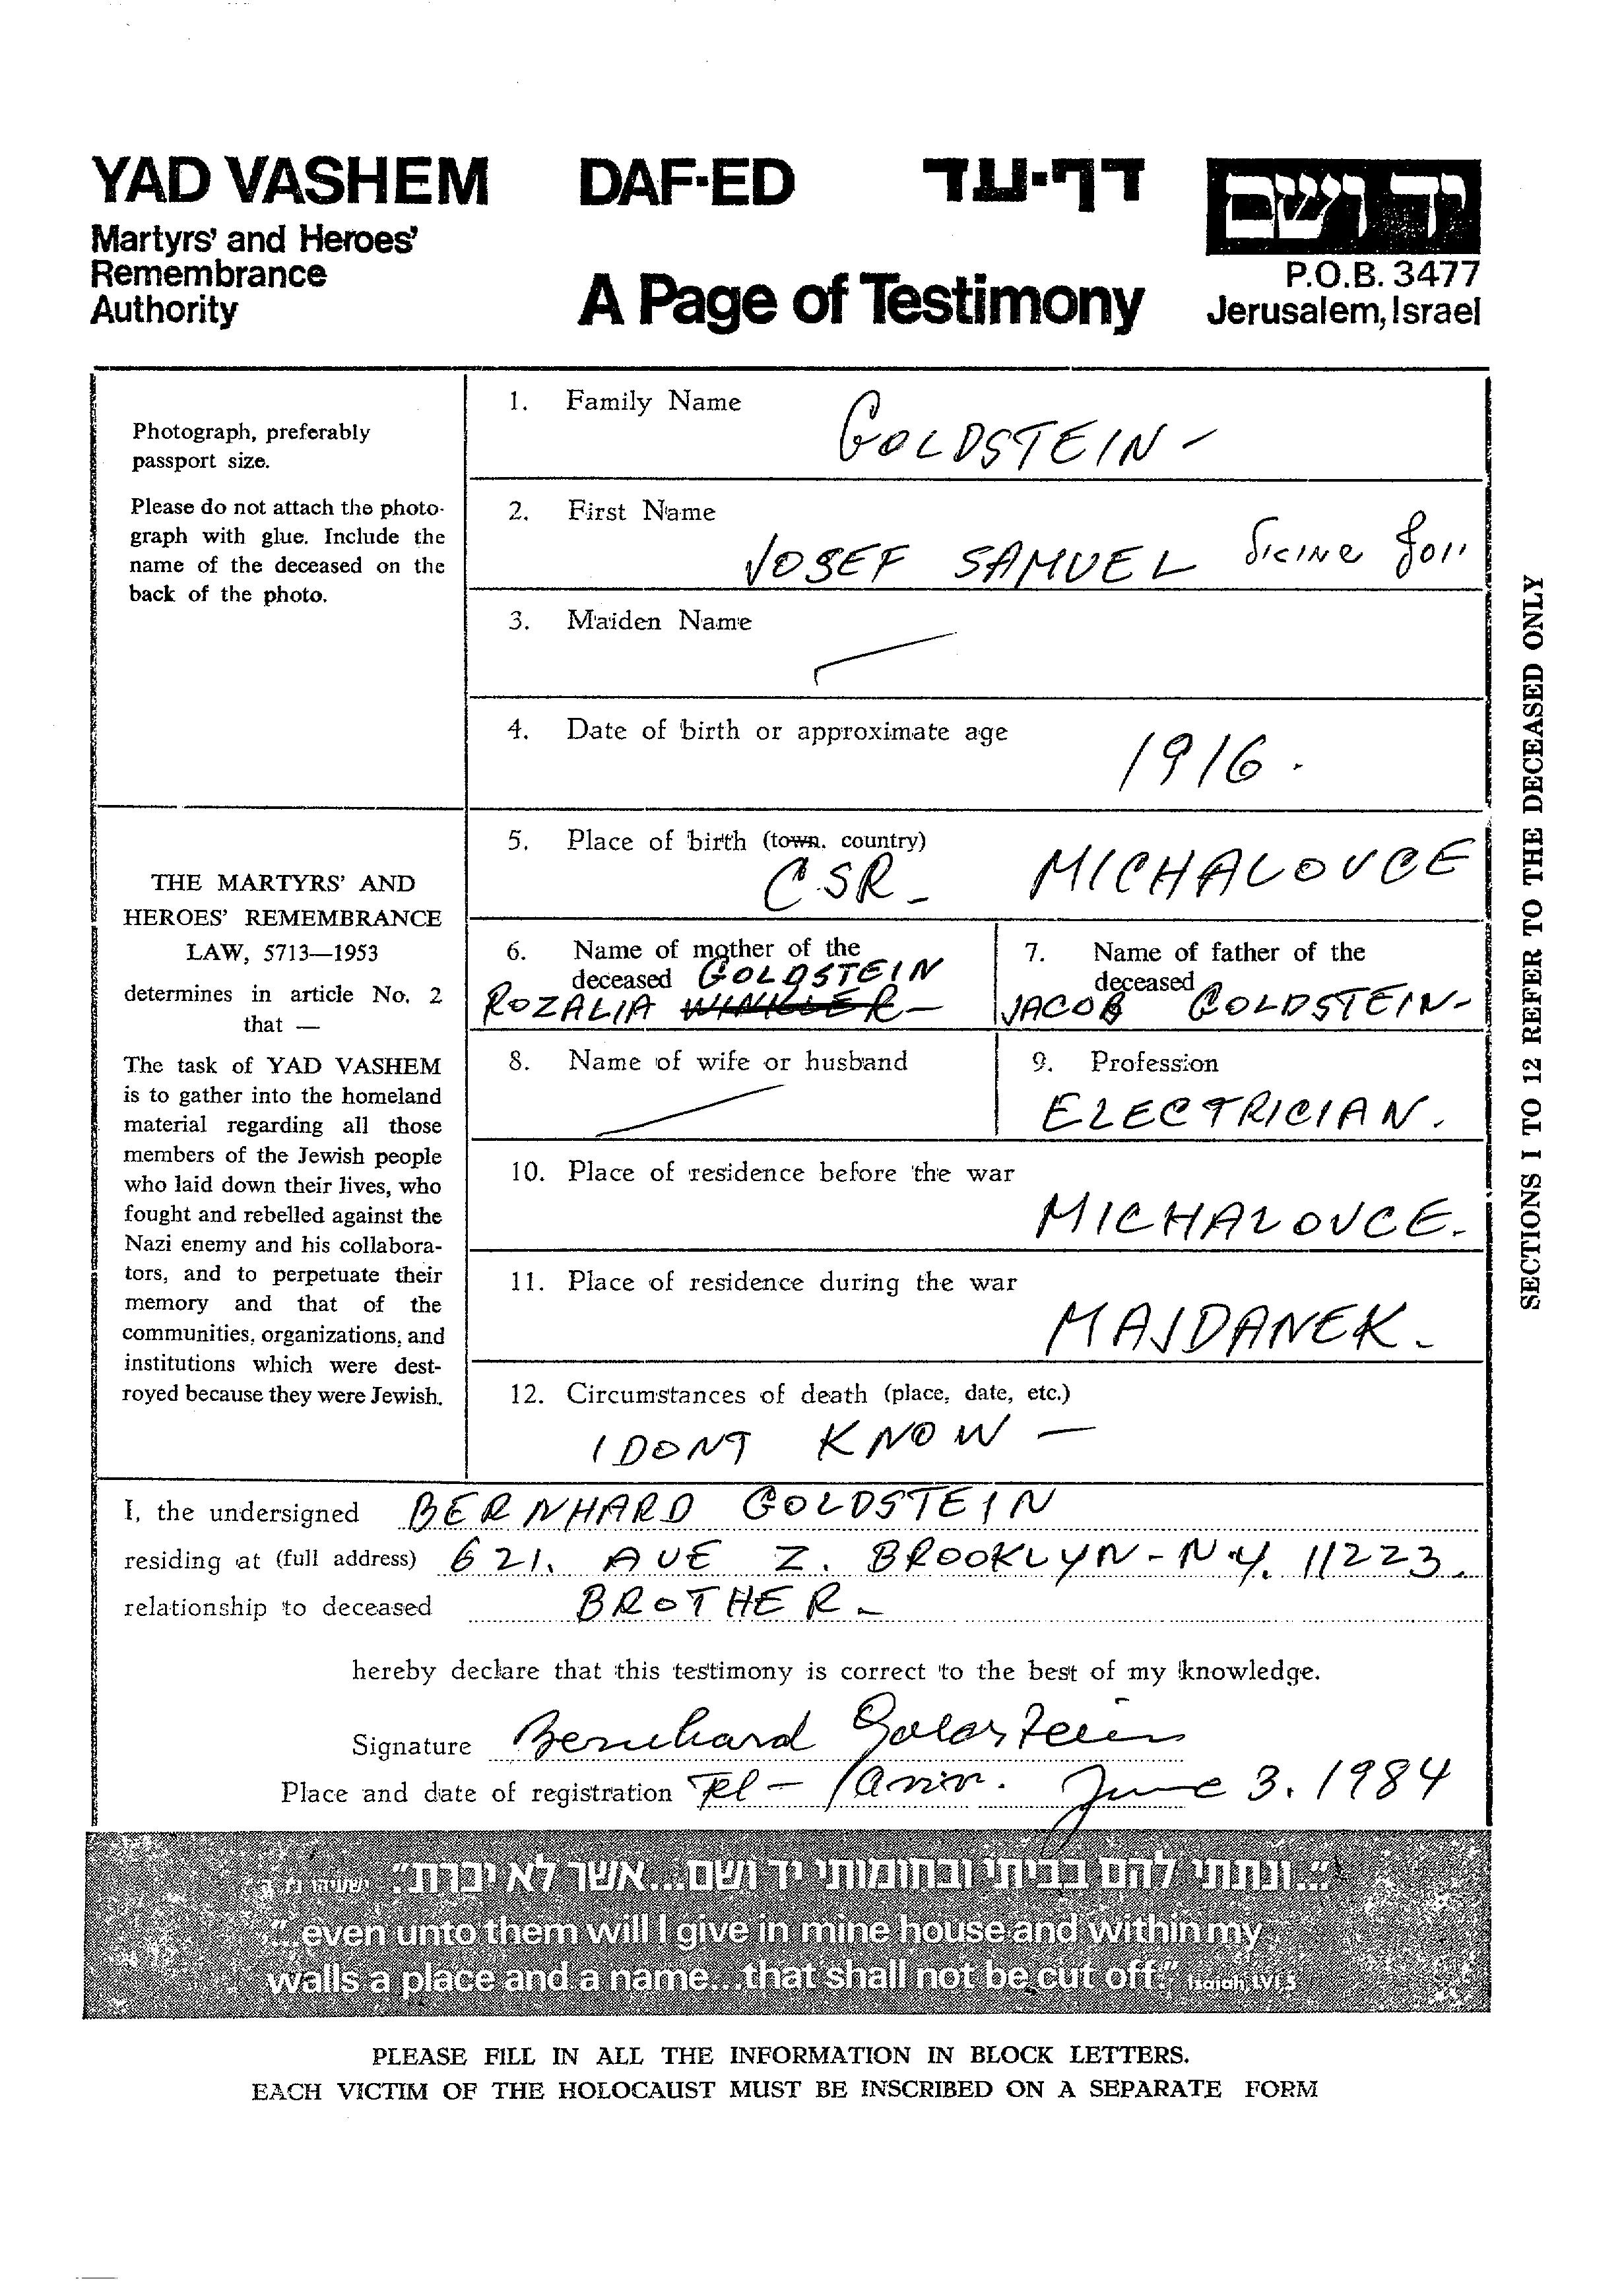 YAD VASHEM DAF-ED דף-עד ידושם
Martyrs' and Heroes'
Remembrance
Authority
A Page of Testimony
P.O.B. 3477
Jerusalem, Israel
Photograph, preferably
passport size.
Please do not attach the photo-
graph with glue. Include the
name of the deceased on the
back of the photo.
THE MARTYRS' AND
HEROES' REMEMBRANCE
LAW, 5713—1953
determines in article No. 2
that —
The task of YAD VASHEM
is to gather into the homeland
material regarding all those
members of the Jewish people
who laid down their lives, who
fought and rebelled against the
Nazi enemy and his collabora-
tors, and to perpetuate their
memory and that of the
communities, organizations, and
institutions which were dest-
royed because they were Jewish.
1. Family Name
GOLDSTEIN -
2. First Name
JOSEF SAMUEL
3. Maiden Name
4. Date of birth or approximate age
1916.
5. Place of birth (town, country)
CSR - MICHALOVCE
6. Name of mother of the
deceased GOLDSTEIN
ROZALIA WINKLER -
7. Name of father of the
deceased
JACOB GOLDSTEIN -
8. Name of wife or husband
9. Profession
ELECTRICIAN.
10. Place of residence before the war
MICHALOVCE.
11. Place of residence during the war
MAJDANEK.
12. Circumstances of death (place, date, etc.)
I DONT KNOW —
SECTIONS 1 TO 12 REFER TO THE DECEASED ONLY
I, the undersigned BERNHARD GOLDSTEIN
residing at (full address) 621. AVE Z. BROOKLYN - N.Y. 11223.
relationship to deceased BROTHER -
hereby declare that this testimony is correct to the best of my knowledge.
Signature Bernhard Goldstein
Place and date of registration Tel-Aviv. June 3. 1984
"...ונתתי להם בביתי ובחומותי יד ושם...אשר לא יכרת." ישעיהו נו, ה
"...even unto them will I give in mine house and within my
walls a place and a name...that shall not be cut off." Isaiah LVI,5
PLEASE FILL IN ALL THE INFORMATION IN BLOCK LETTERS.
EACH VICTIM OF THE HOLOCAUST MUST BE INSCRIBED ON A SEPARATE FORM